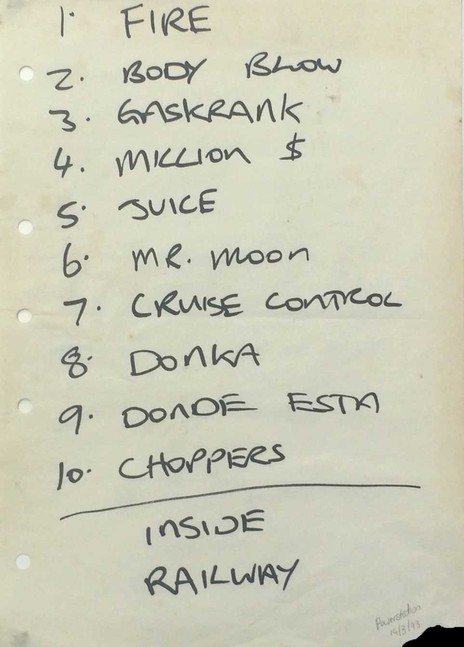 1. FIRE
2. BODY BLOW
3. GASKRANK
4. MILLION $
5. JUICE
6. MR. MOON
7. CRUISE CONTROL
8. DONKA
9. DONDE ESTA
10. CHOPPERS
INSIDE
RAILWAY